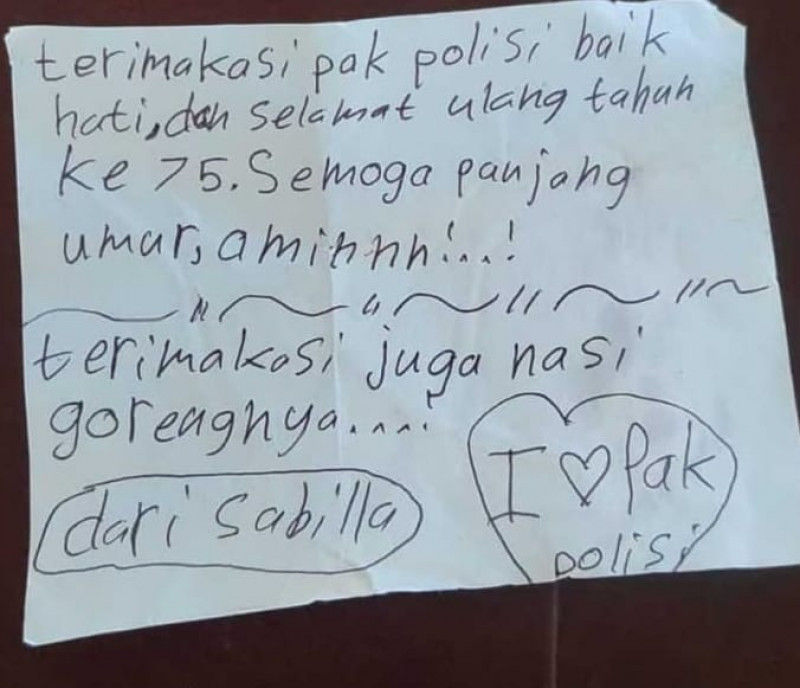 terimakasi pak polisi baik
hati, dan selamat ulang tahun
ke 75. Semoga panjang
umur, aminnn!..!
terimakasi juga nasi
goreagnya....!
dari sabilla
I ♡ Pak
polisi